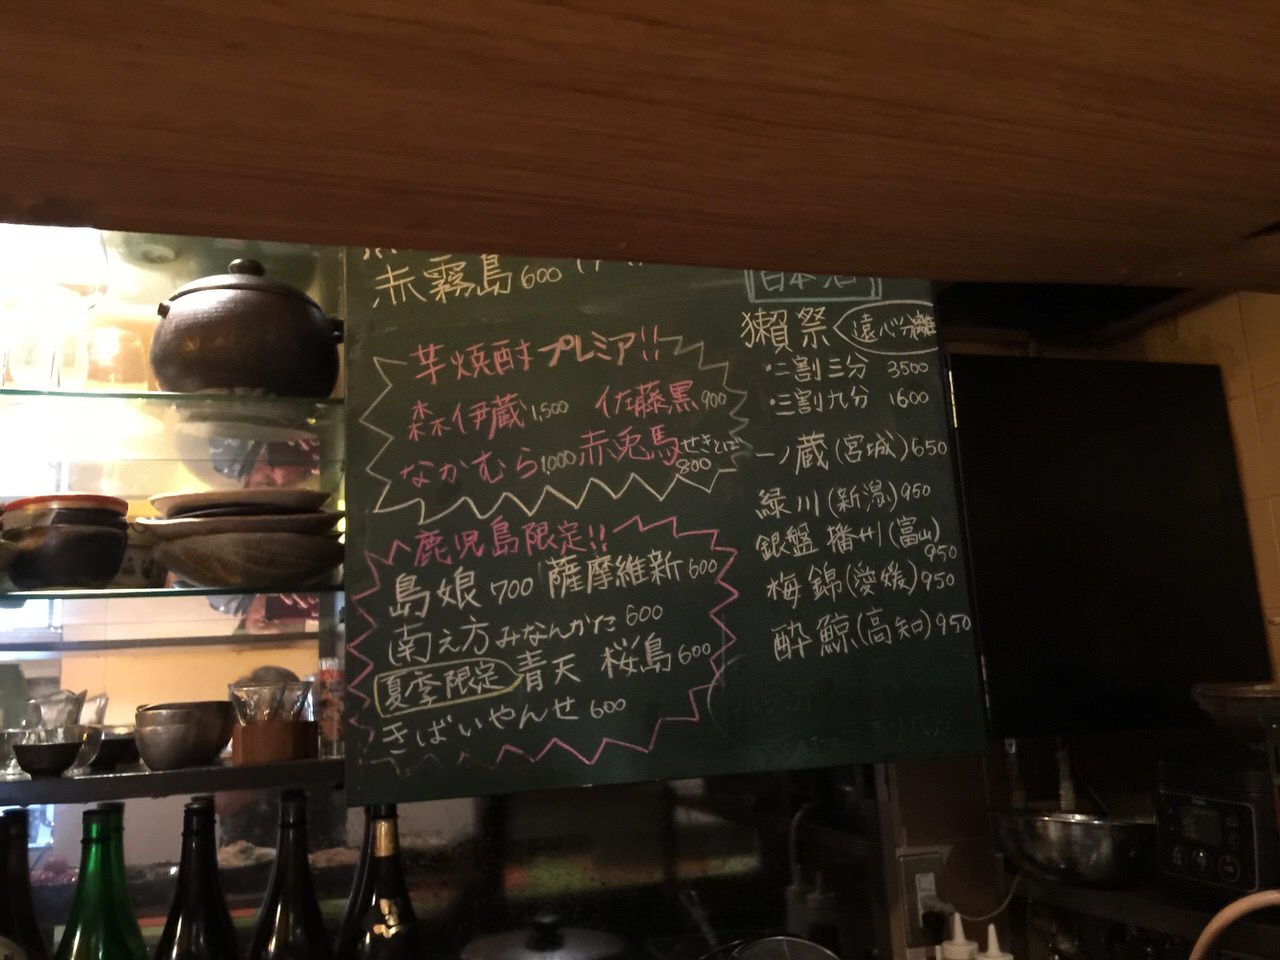 赤霧島 600
芋焼酎プレミア!!
森伊蔵 1,500 佐藤黒 900
なかむら 1,000 赤兎馬 せきとば 800
鹿児島限定!!
島娘 700 薩摩維新 600
南之方 みなんかた 600
夏季限定 青天 桜島 600
きばいやんせ 600
日本酒
獺祭 遠心分離
・二割三分 3500
・三割九分 1600
一ノ蔵(宮城) 650
緑川(新潟) 950
銀盤 播州(富山) 950
梅錦(愛媛) 950
酔鯨(高知) 950